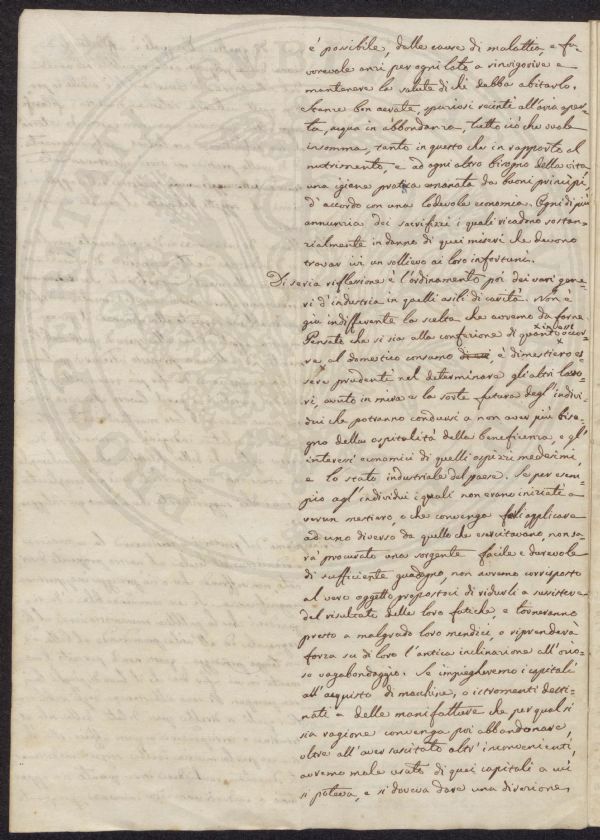 è possibile, dalle cause di malattia, e fa-
vorevole anzi per ogni lato a rinvigorire e
mantenere la salute di chi debba abitarlo.
Stanze ben aerate, spaziosi recinti all'aria aper-
ta, acqua in abbondanza, tutto ciò che vuole
insomma, tanto in questo che in rapporto al
nutrimento, e ad ogni altro bisogno della vita
una igiene pratica emanata da buoni principi,
d'accordo con una lodevole economia. Ogni di più
annunzia dei sacrifizi i quali ricadono sostan-
zialmente in danno di quei miseri che devono
trovar ivi un sollievo ai loro infortuni.
Di seria riflessione è l'ordinamento poi dei vari gene-
ri d'industria in quelli asili di carità. Non è
già indifferente la scelta che avremo da farne
Pensate che si sia alla confezione di quanto occor-
re, al domestico consumo è di mestiero es-
sere prudenti nel determinare gli altri lavo-
ri, avuto in mira e la sorte futura degl'indivi-
dui che potranno condursi a non aver più biso-
gno della ospitalità della beneficenza, e gl'
interessi economici di quelli ospizi medesimi,
e lo stato industriale del paese. Se per esem-
pio agl'individui i quali non erano iniziati a
verun mestiero, o che convenga applicare
ad uno diverso da quello che esercitavano, non sa-
rà procurato una sorgente facile e durevole
di sufficiente guadagno, non avremo corrisposto
al vero oggetto propostoci di ridurli a sussistere
del risultato delle loro fatiche, e torneranno
presto a malgrado loro mendici, o riprenderà
forza su di loro l'antica inclinazione all'ozio-
so vagabondaggio. Se impiegheremo i capitali
all'acquisto di macchine, o istromenti desti-
nati a delle manifatture che per qual si
sia ragione convenga poi abbandonare,
oltre all'aver suscitato altr'inconvenienti,
avremo male usato di quei capitali a cui
si poteva, e si doveva dare una direzione